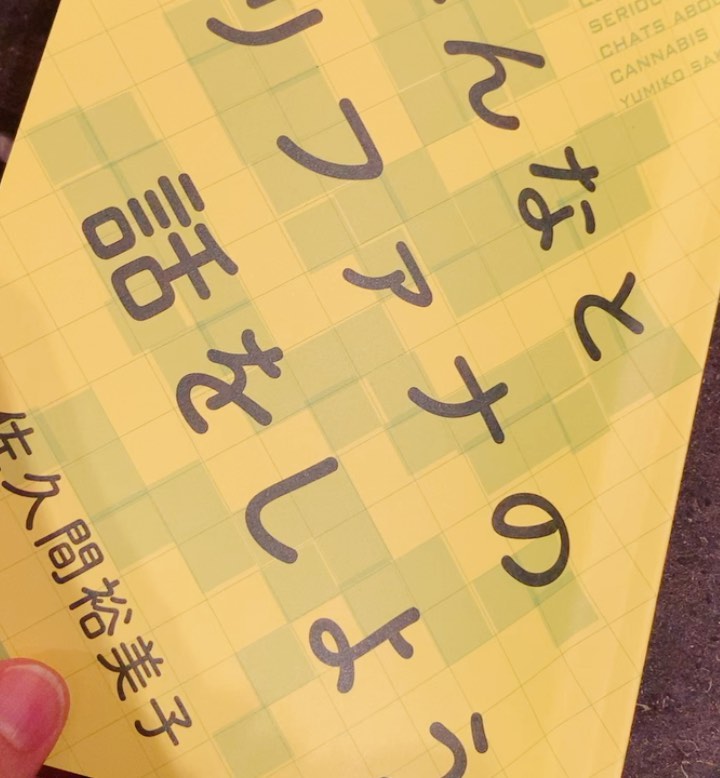 SERIOU
CHATS ABO
CANNABIS
YUMIKO SA
んなと
リファナの
話をしよう
佐久間裕美子